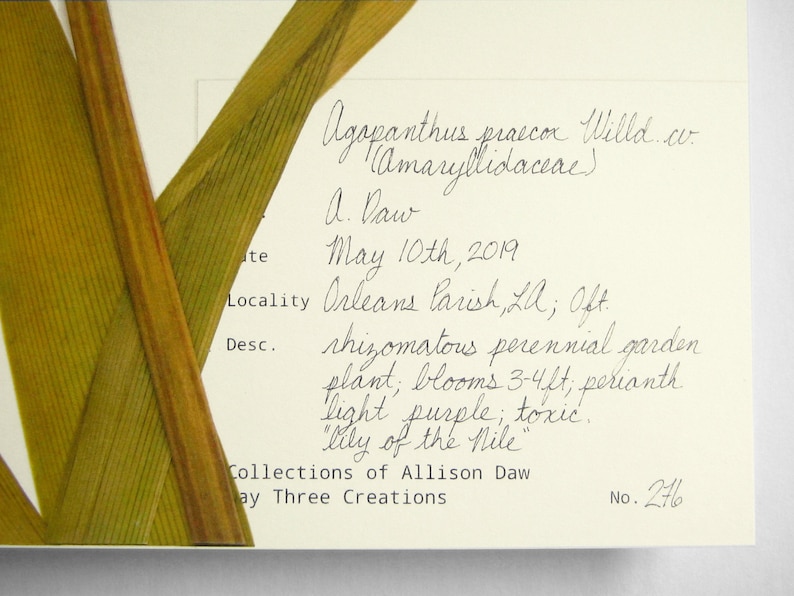 Agapanthus praecox Willd. cv.
(Amaryllidaceae)
A. Daw
ate May 10th, 2019
Locality Orleans Parish, LA; 0ft.
Desc. rhizomatous perennial garden
plant; blooms 3-4ft; perianth
light purple; toxic.
"lily of the Nile"
Collections of Allison Daw
ay Three Creations No. 276